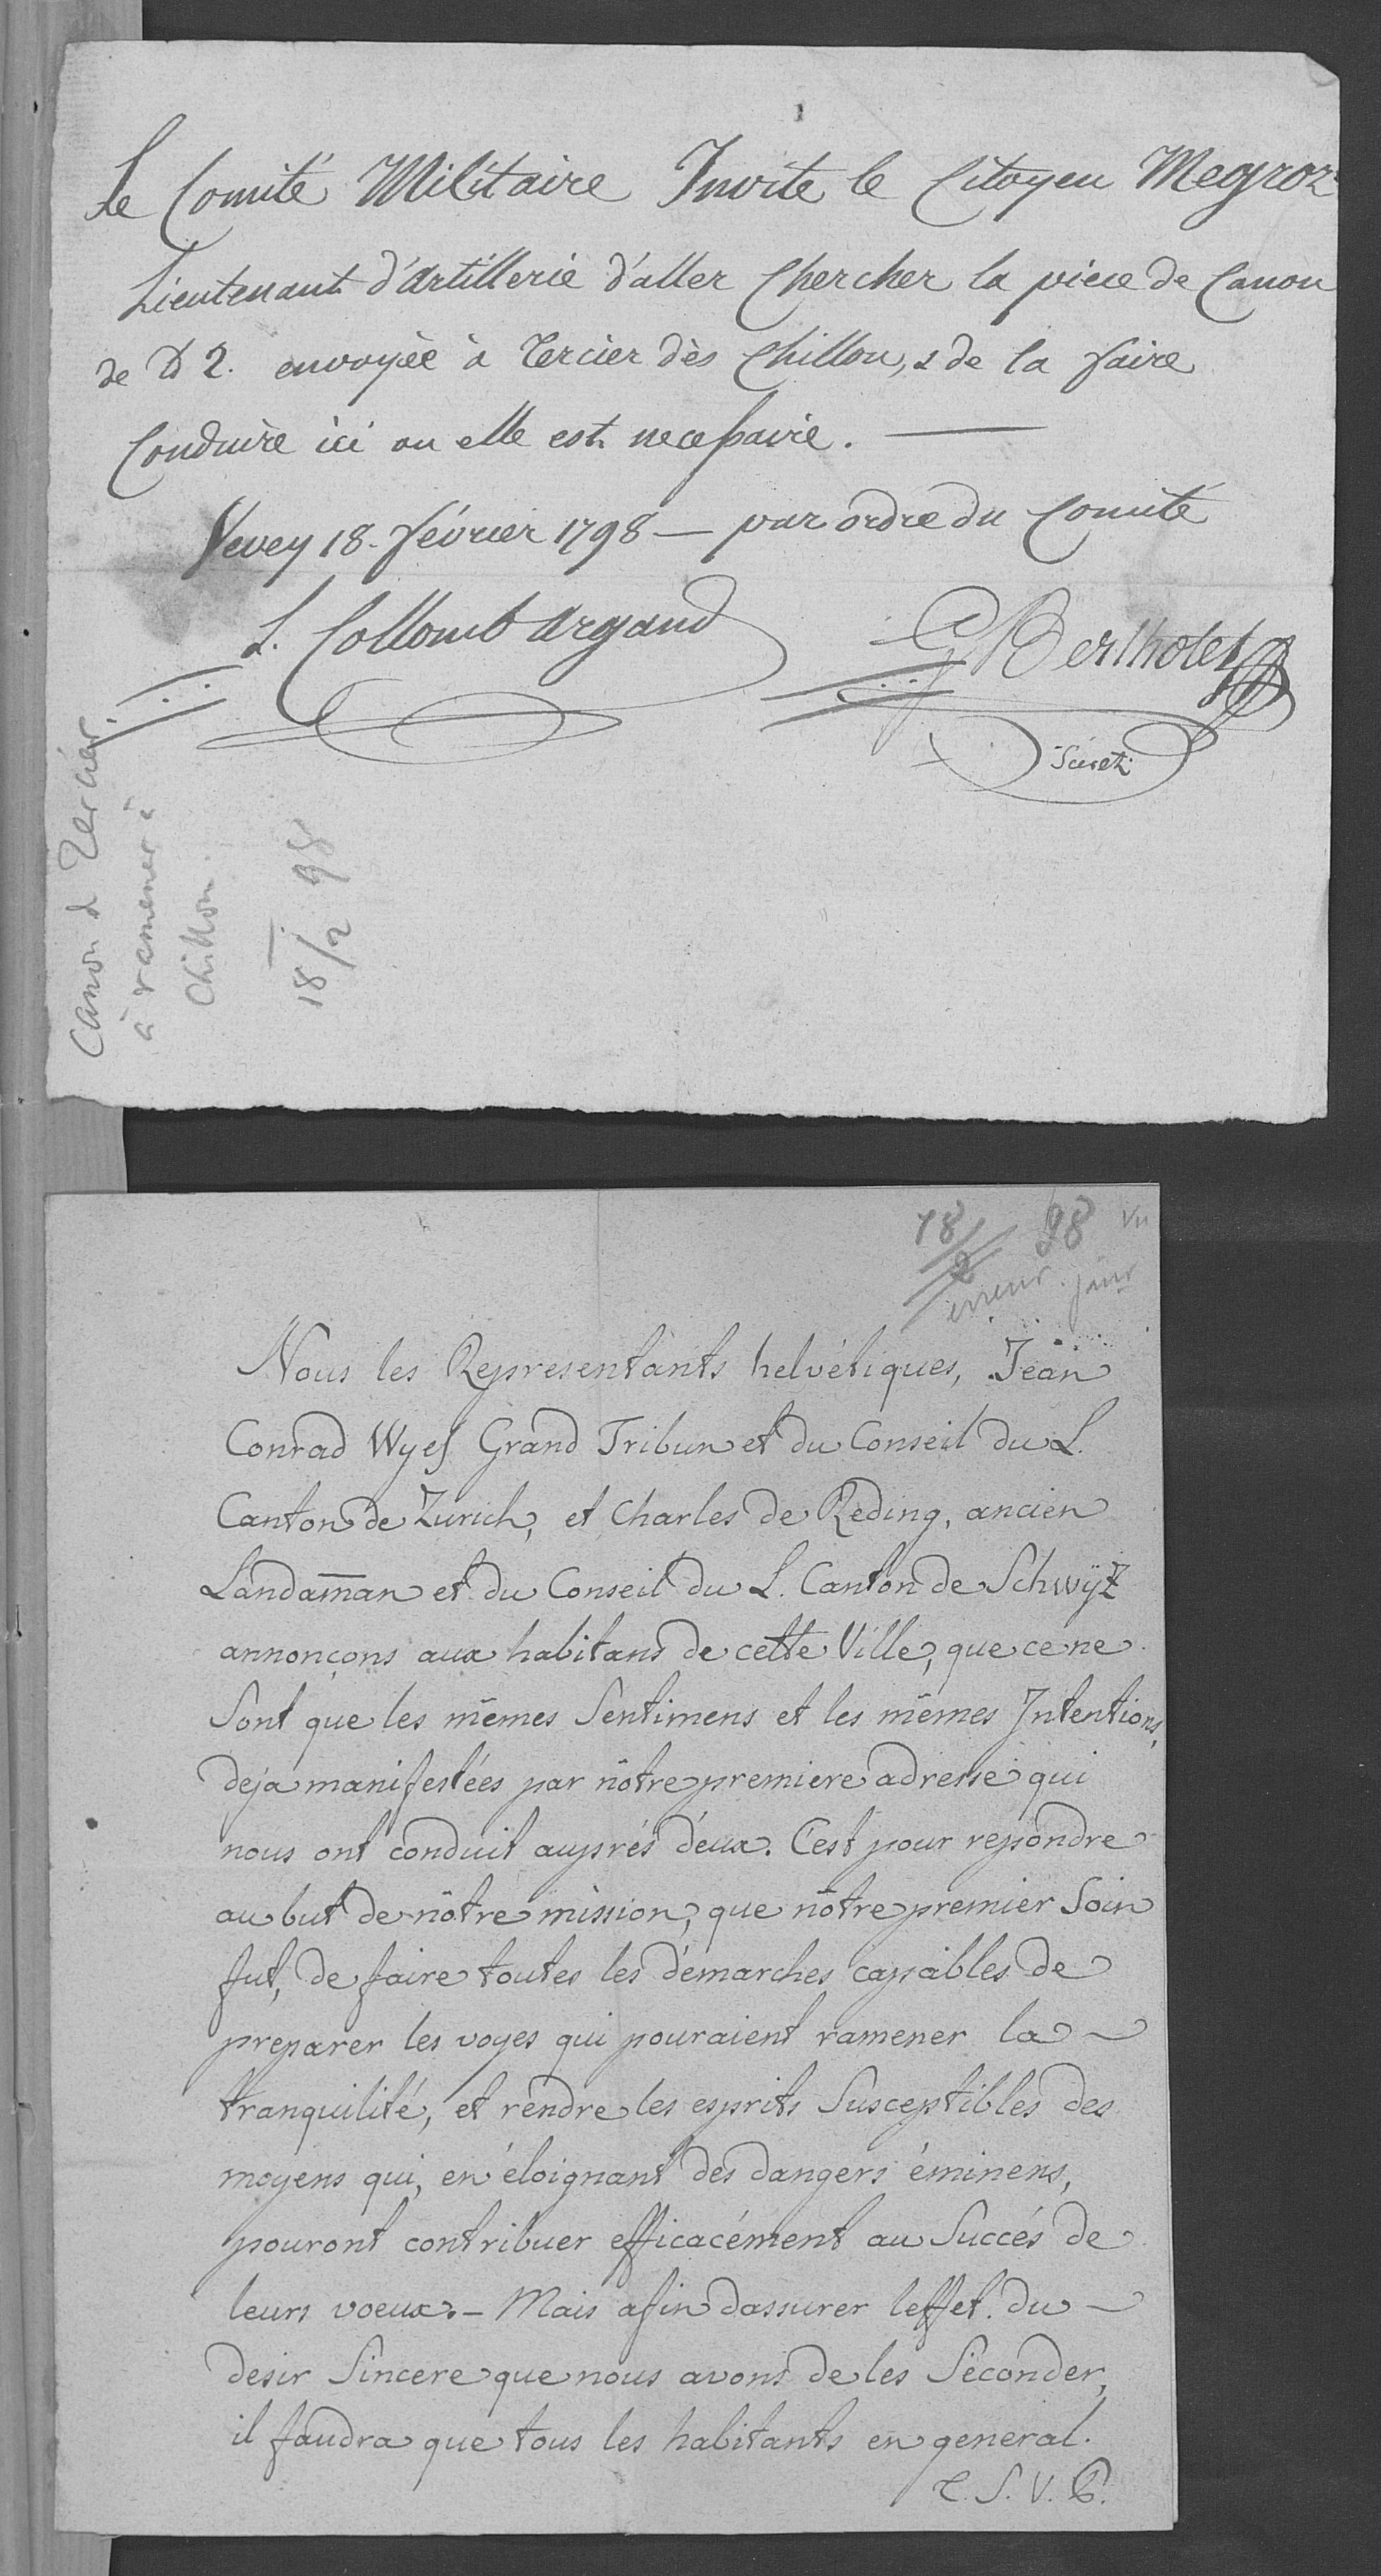 Le Comité Militaire Invite le Citoyen Megroz
Lieutenant d'Artillerie d'aller Chercher la piece de Canon
de ℔ 2. envoyée à Tercier dès Chillon, & de la faire
Conduire ici ou elle est necessaire. —
Vevey 18. février 1798 — par ordre du Comité
L. Collomb Argand
G Bertholet
Secret:
Canon d Tercier
à ramener à
Chillon
18/2 98
18/2 98 Vu
erreur. janr
Nous les Representants helvétiques, Jean
Conrad Wyss Grand Tribun et du Conseil du L.
Canton de Zurich, et Charles de Reding, ancien
Landam̄an et du Conseil du L. Canton de Schwÿz
annonçons aux habitans de cette Ville, que ce ne
Sont que les mêmes Sentimens et les mêmes Intentions,
deja manifestées par nôtre premiere adresse qui
nous ont conduit auprés d'eux. C'est pour repondre
au but de nôtre mission, que nôtre premier Soin
fut, de faire toutes les démarches capables de
preparer les voyes qui pouraient ramener la
tranquilité, et rendre les esprits Susceptibles des
moyens qui, en éloignant des dangers éminens,
pouront contribuer efficacément au Succés de
leurs voeux. – Mais afin dassurer leffet du
desir Sincere que nous avons de les Seconder,
il faudra que tous les habitants en general.
T. S. V. P.